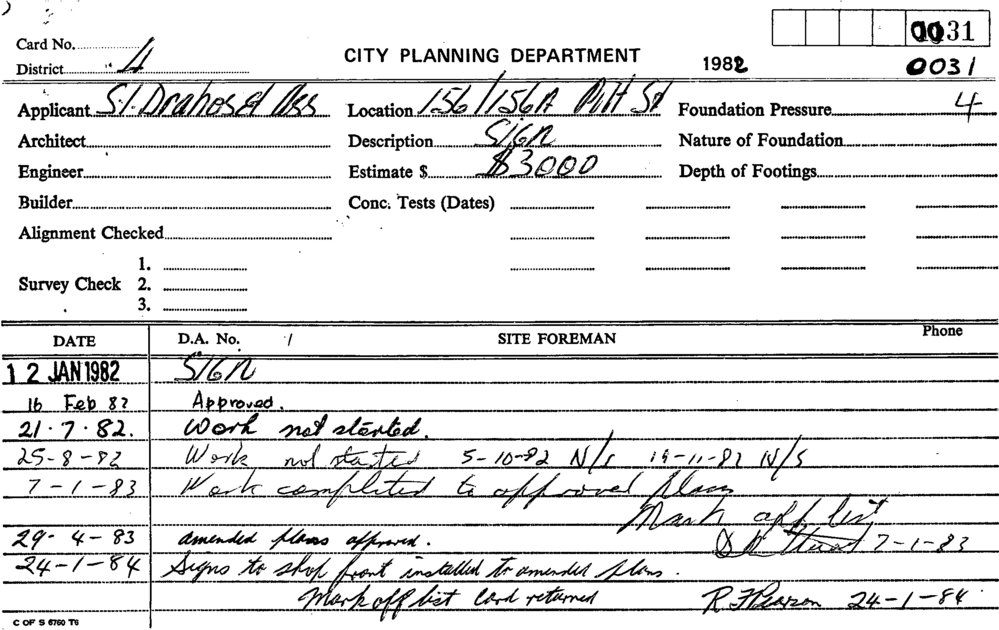 0031
Card No.
CITY PLANNING DEPARTMENT 1982 0031
District 4
Applicant S.I. Drahos & Ass Location 156/156A Pitt St Foundation Pressure 4
Architect Description SIGN Nature of Foundation
Engineer Estimate $ $3000 Depth of Footings
Builder Conc. Tests (Dates)
Alignment Checked
1.
Survey Check 2.
3.
DATE D.A. No. / SITE FOREMAN Phone
12 JAN 1982 SIGN
16 Feb 82 Approved.
21.7.82. Work not started.
25-8-82 Work not started 5-10-82 N/S 19-11-82 N/S
7-1-83 Work completed to approved plans
Mark off list
29-4-83 amended plans approved. 7-1-83
24-1-84 Signs to shop front installed to amended plans.
Mark off list Card returned R F Pearson 24-1-84
C OF S 6760 T6